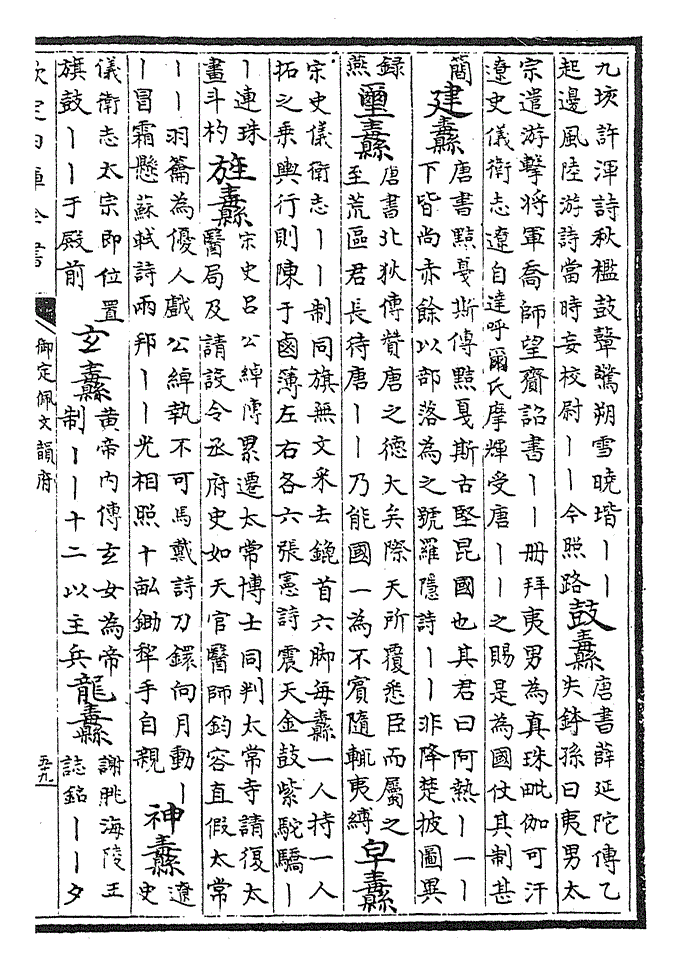 九垓許渾詩秋檻鼓鼙驚朔雪曉堦丨丨
起邊風陸游詩當時妄校尉丨丨今照路
鼓纛
唐書薛延陀傳乙
失鉢孫曰夷男太
宗遣游擊將軍喬師望齎詔書丨丨冊拜夷男為真珠毗伽可汗
遼史儀衛志遼自達呼爾氏摩輝受唐丨丨之賜是為國仗其制甚
簡
建纛
唐書黠戛斯傳黠戛斯古堅昆國也其君曰阿熱丨一丨
下皆尚赤餘以部落為之號羅隱詩丨丨非降楚披圖異
録
燕
璽纛
唐書北狄傳贊唐之德大矣際天所覆悉臣而屬之
至荒區君長待唐丨丨乃能國一為不賓隨輒夷縛
皁纛
宋史儀衛志丨丨制同旗無文采去鐓首六脚每纛一人持一人
拓之乗輿行則陳于鹵簿左右各六張憲詩震天金鼓紫駝驕丨
丨連珠
畫斗杓
旌纛
宋史呂公綽傳累遷太常博士同判太常寺請復太
醫局及請設令丞府史如天官醫師鈞容直假太常
丨丨羽籥為優人戲公綽執不可馬戴詩刀鐶向月動丨
丨冒霜懸蘇軾詩雨邦丨丨光相照十畝鋤犂手自親
神纛
遼
史
儀衛志太宗即位置
旗鼓丨丨于殿前
玄纛
黄帝内傳玄女為帝
制丨丨十二以主兵
龍纛
謝朓海陵王
誌銘丨丨夕
欽定四庫全書
御定佩文韻府